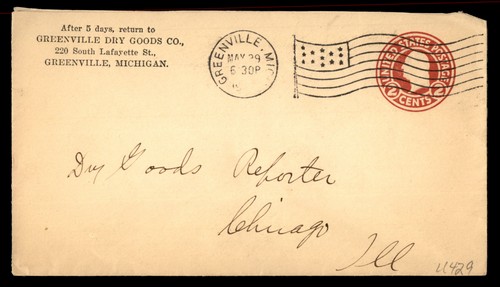 After 5 days, return to
GREENVILLE DRY GOODS CO.,
220 South Lafayette St.,
GREENVILLE, MICHIGAN.
GREENVILLE, MICH
MAY 29
6 30P
UNITED STATES POSTAGE
2 CENTS 2
Dry Goods Reporter
Chicago
Ill
U429